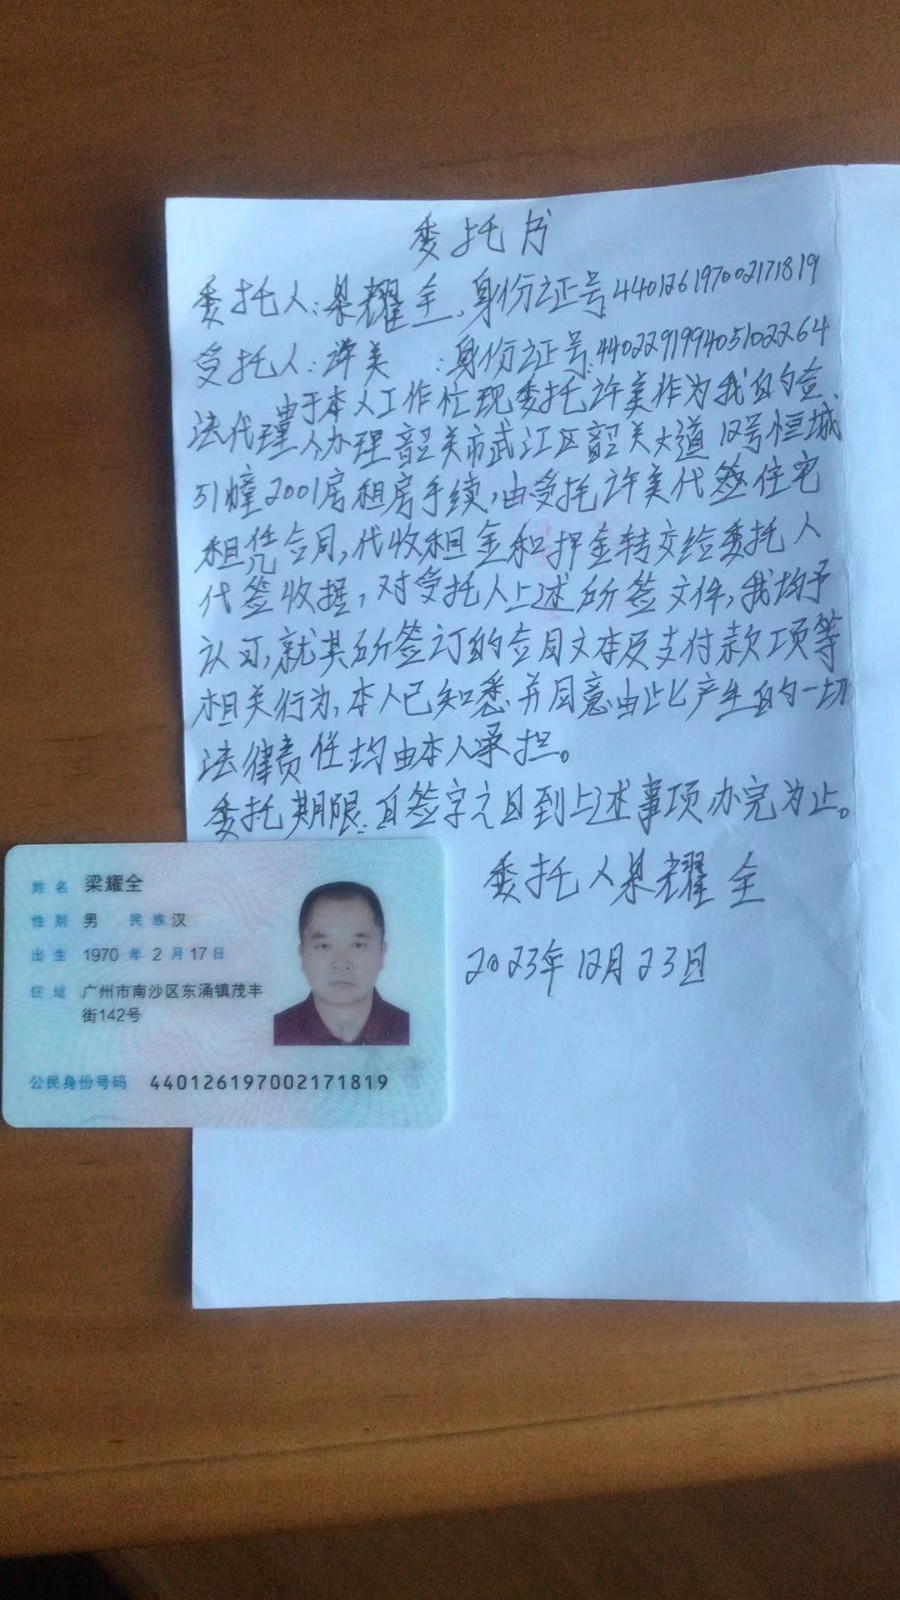 委托书
委托人:梁耀全、身份证号:440126197002171819
受托人:许美 :身份证号:440229199405102264
由于本人工作忙现委托许美作为我的合
法代理人办理韶关市武江区韶关大道12号恒城
51幢2001房租房手续,由受托许美代签住宅
租凭合同,代收租金和押金转交给委托人
代签收据,对受托人上述所签文件,我均予
认可,就其所签订的合同文本及支付款项等
相关行为,本人已知悉并同意由此产生的一切
法律责任均由本人承担。
委托期限:自签字之日到上述事项办完为止。
委托人梁耀全
2023年12月23日
姓名 梁耀全
性别 男 民族 汉
出生 1970 年 2 月 17 日
住址 广州市南沙区东涌镇茂丰
街142号
公民身份号码 440126197002171819